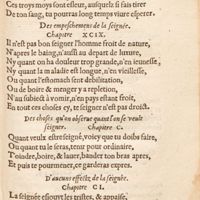 Ces troys moys sont esleuz, ausquelz si fais tirer
De ton sang, tu pourras long temps viure esperer.
Des empeschemens de la seignée.
Chapitre XCIX.
Il n'est pas bon seigner l'homme froit de nature,
N'apres le baing, n'aussi au depart de luxure,
Ny quant on ha douleur trop grande, n'en ieunesse,
Ny quant la maladie est longue, n'en vieillesse,
Ou quant l'estomach sent debilitation,
Ou de boire & menger y a repletion,
N'au subiect à vomir, n'en pays estant froit,
En tout ces choses cy, te seigner n'est pas droict.
Des choses qu'on obserue quant l'on se veult
seigner. Chapitre C.
Quant veulx estre seigné, voicy que tu doibs faire,
Ou quant tu le seras, tenir pour ordinaire,
T'oindre, boire, & lauer, bander ton bras apres,
Et puis te pourmener, ce garderas expres.
D'aucuns effectz de la seignée.
Chapitre CI.
La seignée esiouyt les tristes, & appaise,